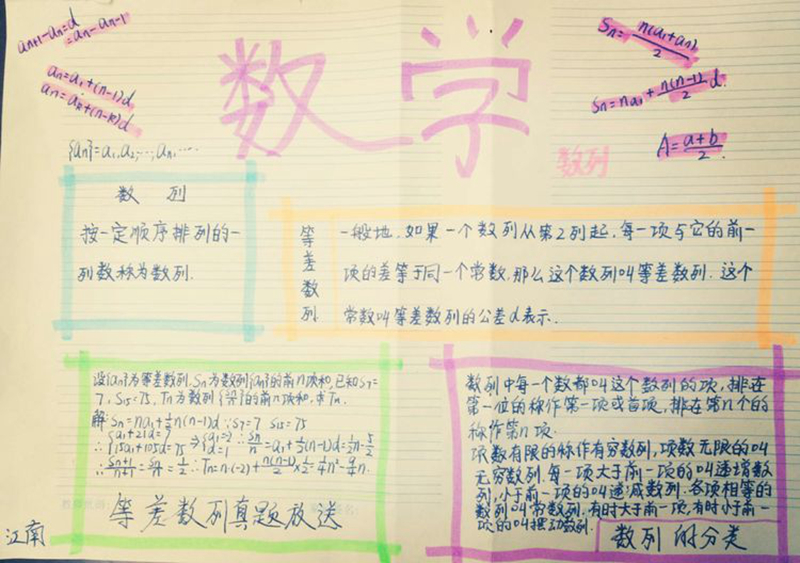 数学
aₙ₊₁-aₙ=d
=aₙ-aₙ₋₁
aₙ=a₁+(n-1)d
aₙ=aₖ+(n-k)d
{aₙ}=a₁,a₂,…,aₙ,…
Sₙ=n(a₁+aₙ)/2
Sₙ=na₁+n(n-1)/2 d.
A=a+b/2.
数列
数列
按一定顺序排列的一
列数称为数列.
等差数列
一般地.如果一个数列从第2列起,每一项与它的前一
项的差等于同一个常数,那么这个数列叫等差数列.这个
常数叫等差数列的公差d表示.
设{aₙ}为等差数列.Sₙ为数列{aₙ}的前n项和,已知S₇=
7,S₁₅=75,Tₙ为数列{Sₙ/n}的前n项和,求Tₙ.
解:Sₙ=na₁+½n(n-1)d ∵S₇=7 S₁₅=75
∴{7a₁+21d=7
15a₁+105d=75 ⇒{a₁=-2
d=1 ∴Sₙ/n=a₁+½(n-1)d=½n-5/2
∴Sₙ₊₁/n+1-Sₙ/n=½ ∴Tₙ=n·(-2)+n(n-1)/2×½=¼n²-9/4n.
等差数列真题放送
江南
数列中每一个数都叫这个数列的项,排在
第一位的称作第一项或首项,排在第n个的
称作第n项.
项数有限的称作有穷数列,项数无限的叫
无穷数列.每一项大于前一项的叫递增数
列,小于前一项的叫递减数列.各项相等的
数列叫常数列.有时大于前一项,有时小于前一
项的叫摆动数列.
数列的分类